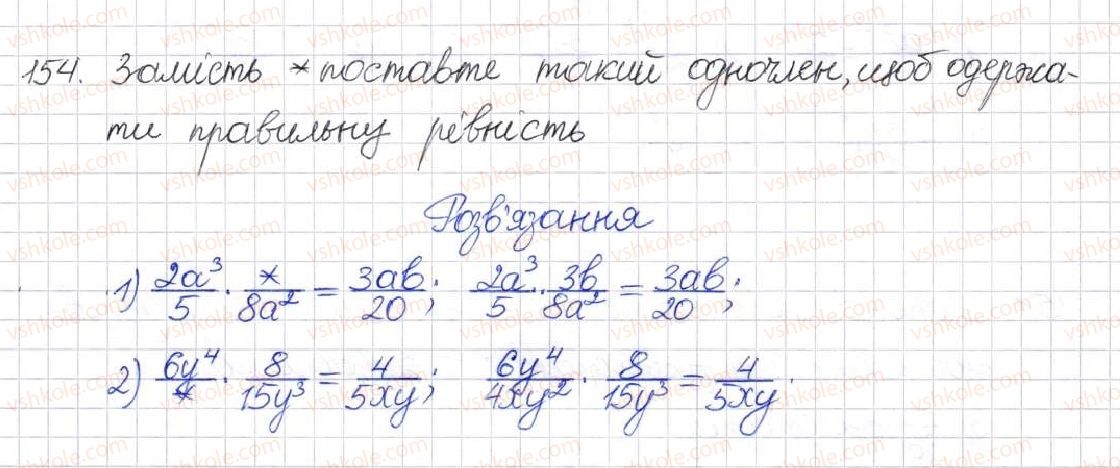 154. Замість * поставте такий одночлен, щоб одержа-
ти правильну рівність
Розв'язання
1) 2a³/5 · */8a² = 3ab/20; 2a³/5 · 3b/8a² = 3ab/20;
2) 6y⁴/* · 8/15y³ = 4/5xy; 6y⁴/4xy² · 8/15y³ = 4/5xy.